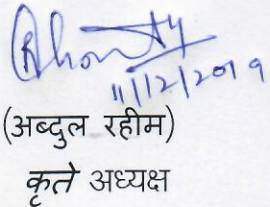 11/12/2019
(अब्दुल रहीम)
कृते अध्यक्ष